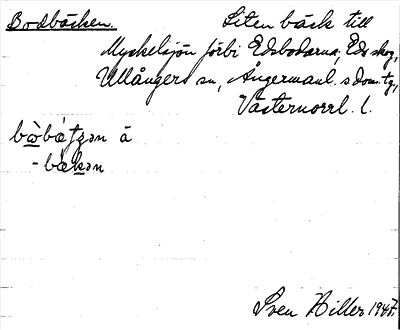 Bodbäcken. Liten bäck till
Myckelsjön förbi Edsbodarna, Eds skog,
Ullångers sn, Ångermanl. s dom. tg,
Västernorrl. l.
bæ̀bætʒən å
- bækən
Sven Hiller 1947.